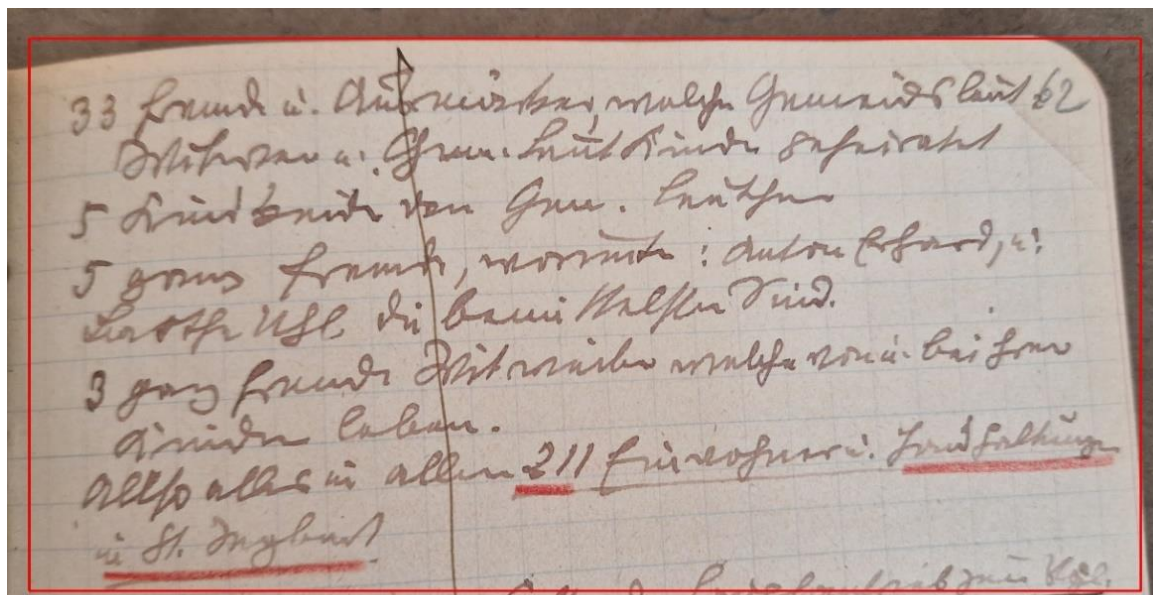 33 fremde u. Ausmärker, welche Gemeindsleut 62
Witwen u. Gem. Leut Kinder geheiratet
5 von Gem. Leuthen
5 ganz fremde, worunter: Anton Erhard, u:
Barthe Uhl die bemittelsten Sind.
3 ganz fremde Witweiber welche von u. bei ihren
Kinder leben.
Allso alles in allen 211 Einwohner u. Haushaltungen
in St. Ingbert